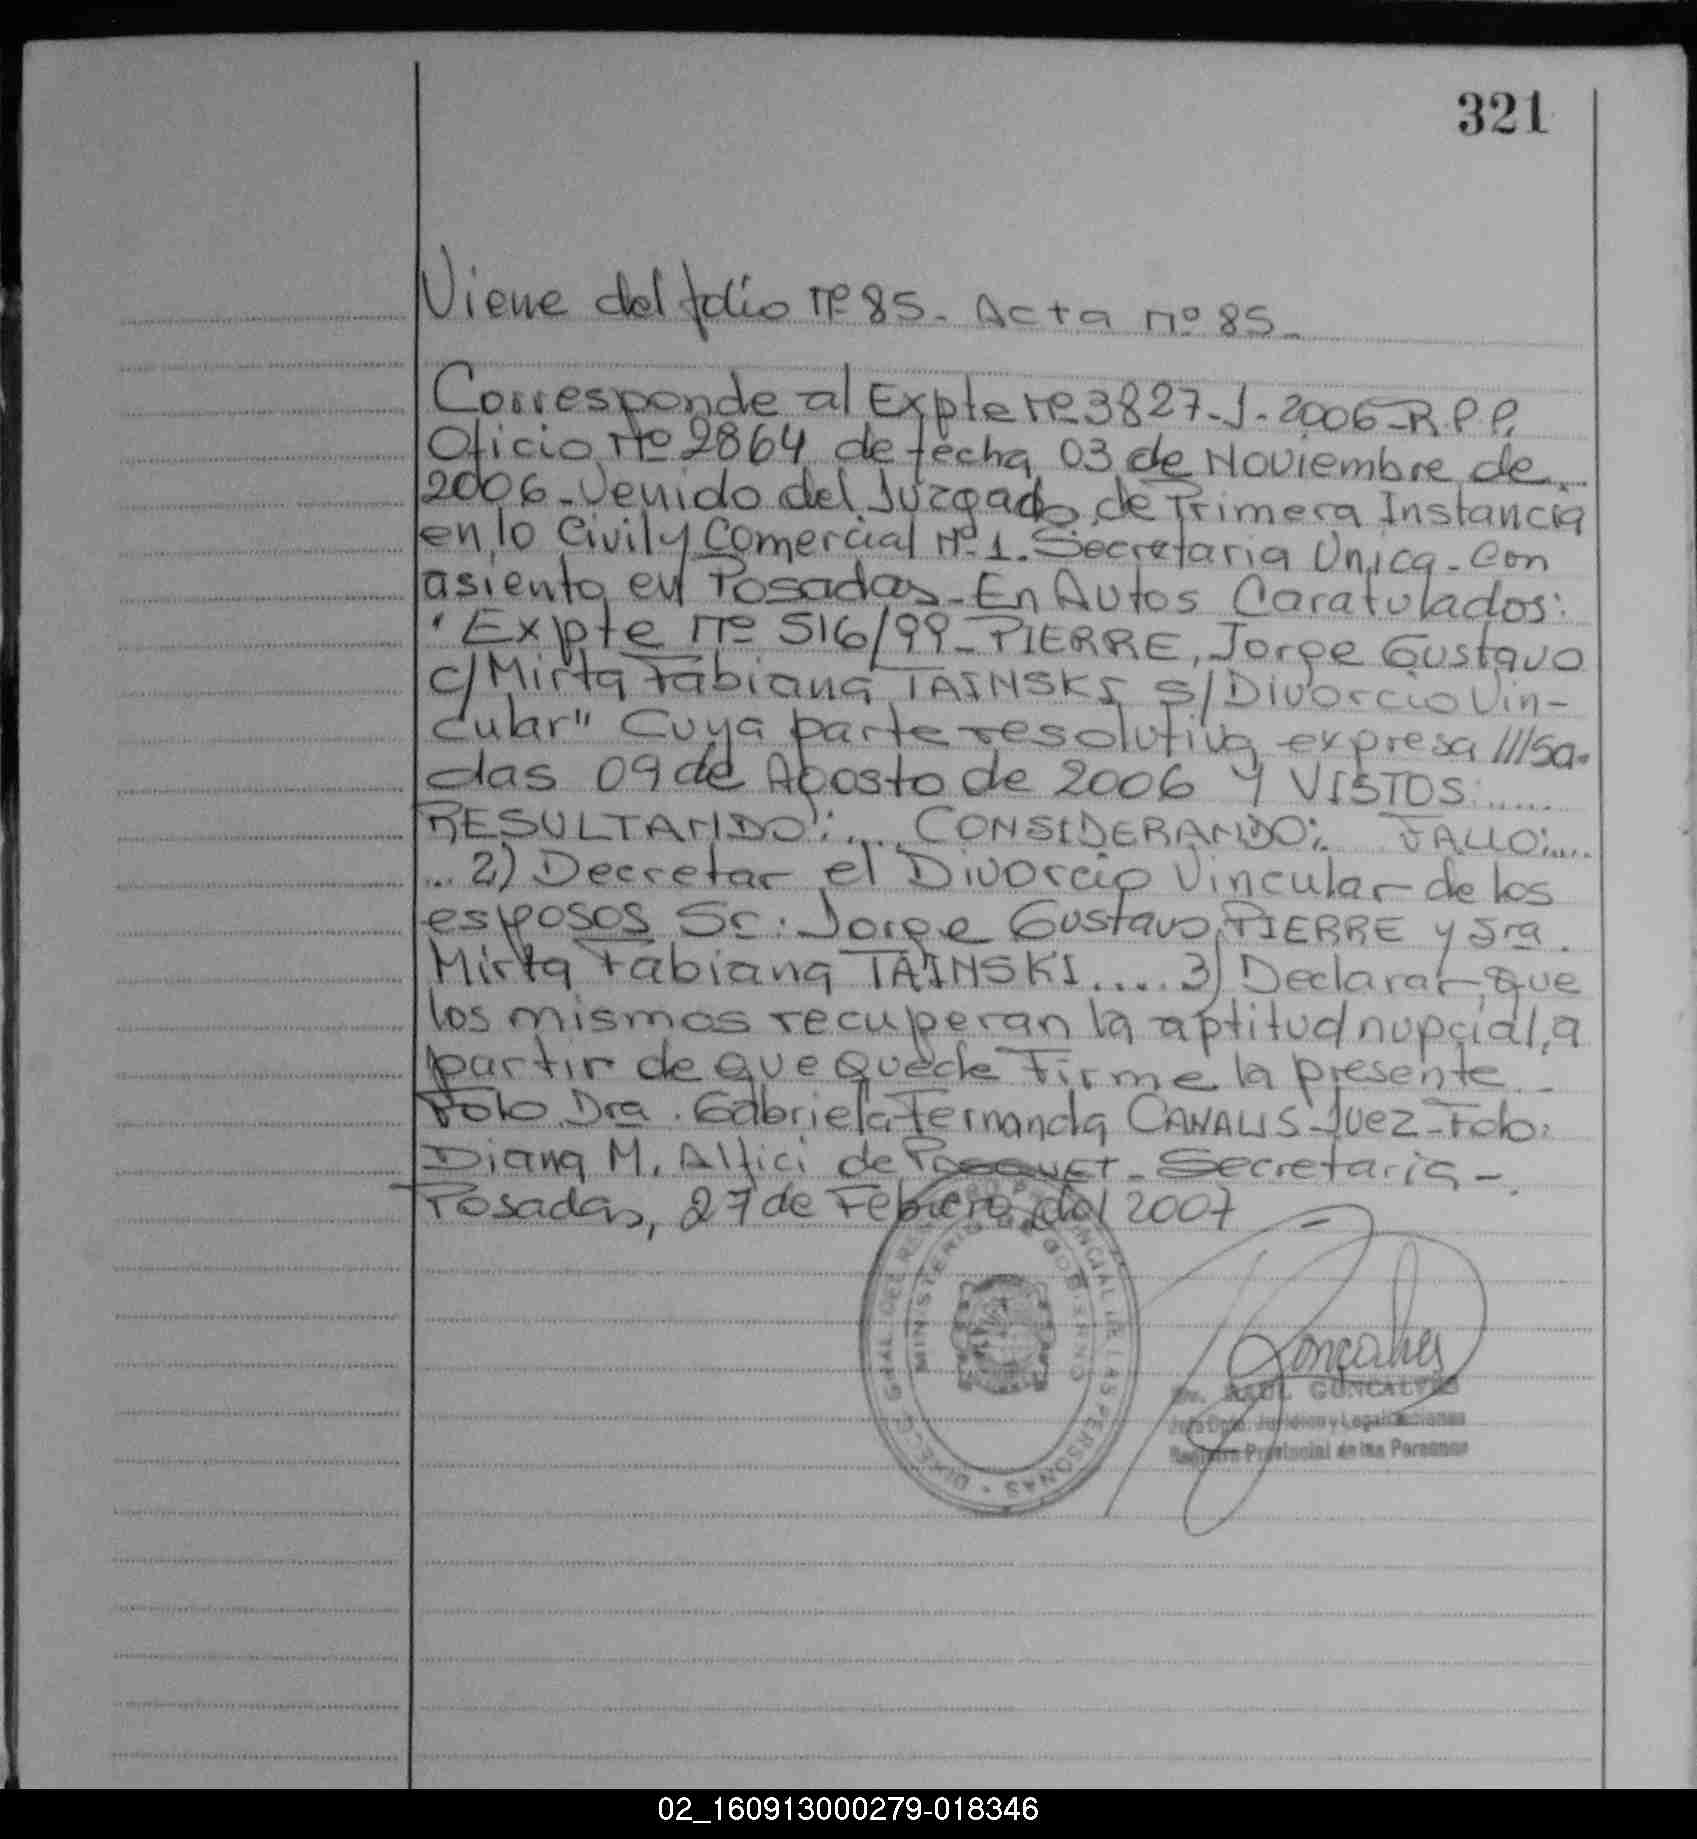 321
Viene del folio nº 85. Acta nº 85.
Corresponde al Expte nº 3827-J-2006-R.P.P.
Oficio Nº 2864 de fecha 03 de Noviembre de
2006-Venido del Juzgado de Primera Instancia
en lo Civil y Comercial Nº 1. Secretaria Unica-con
asiento en Posadas-En Autos Caratulados:
"Expte nº 516/99-PIERRE, Jorge Gustavo
c/Mirta Fabiana TAINSKI S/Divorcio Vin-
cular" Cuya parte resolutiva expresa ///Sa-
das 09 de Agosto de 2006 Y VISTOS:.....
RESULTANDO:... CONSIDERANDO:. FALLO:....
... 2) Decretar el Divorcio Vincular de los
esposos Sr: Jorge Gustavo PIERRE y Sra.
Mirta Fabiana TAINSKI.... 3) Declarar que
los mismos recuperan la aptitud nupcial, a
partir de que quede Firme la presente.-
Fdo Dra. Gabriela Fernanda CANALIS-Juez-Fdo:
Diana M. Alfici de - Secretaria-.
Posadas, 27 de Febrero del 2007
DIRECC. GRAL. DEL REGISTRO PROVINCIAL DE LAS PERSONAS
MINISTERIO DE GOBIERNO
Goncalves
Dr. RAUL GONCALVES
Jefe Dpto. Jurídico y Legalizaciones
Registro Provincial de las Personas
02_160913000279-018346